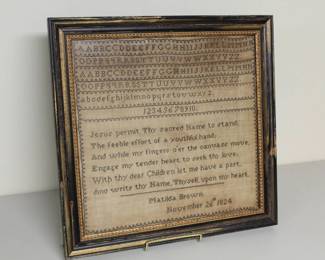 AABBCCDDEEFFGGHHIIJJKKLLMMNN
OOPPQQRRSSTTUUVVWWXXYYZZ
AABBCCDDEEFFGGHHIIJJKKLLMMNN
OOPPQQRRSSTTUUVVWWXXYYZZ
abcdefghijklmnopqrstuvwxyz
12345678910
Jesus permit Thy sacred Name to stand,
The feeble effort of a youthful hand,
And while my fingers o'er the canvass move,
Engage my tender heart to seek thy love,
With thy dear Children let me have a part,
And write thy Name, Thyself, upon my heart.
Matilda Brown
November 26th 1824